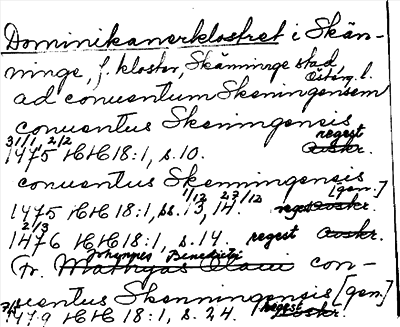 Dominikanerklostret i Skän-
ninge, f. kloster, Skänninge stad,
Östérg. l.
ad conuentum Skeningensem
conuentus Skeningensis
31/1, 2/2 regest
1475 HH 18:1, s. 10. avskr.
conuentus Skenningensis
1/12 23/12 [gen.]
1475 HH 18:1, ss. 13, 14. avskr.
2/3
1476 HH 18:1, s. 14. regest avskr.
Johannes Benedicti
Fr. Mathyas Olaui con-
uentus Skenningensis [gen.]
1479 HH 18:1, s. 24. regest avskr.